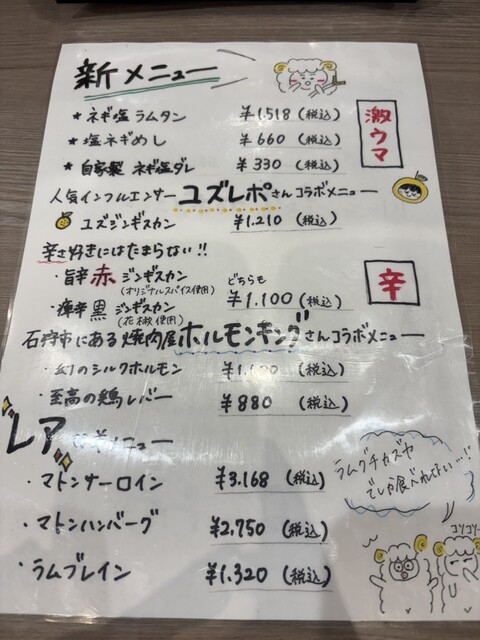 新メニュー
★ ネギ塩 ラムタン ¥1.518 (税込)
★ 塩ネギめし ¥660 (税込)
★ 自家製 ネギ塩ダレ ¥330 (税込)
激ウマ
人気インフルエンサー ユズレポさんコラボメニュー
ユズジンギスカン ¥1.210 (税込)
辛さ好きにはたまらない!!
・旨辛 赤 ジンギスカン
(オリジナルスパイス使用)
どちらも
¥1.100 (税込)
辛
・痺辛 黒 ジンギスカン
(花椒使用)
石狩市にある焼肉屋ホルモンキングさんコラボメニュー
・幻のシルクホルモン (税込)
・至高の鶏レバー ¥880 (税込)
レア メニュー
・マトンサーロイン ¥3.168 (税込)
・マトンハンバーグ ¥2.750 (税込)
・ラムブレイン ¥1.320 (税込)
でしか食べれない…!!
コソコソ